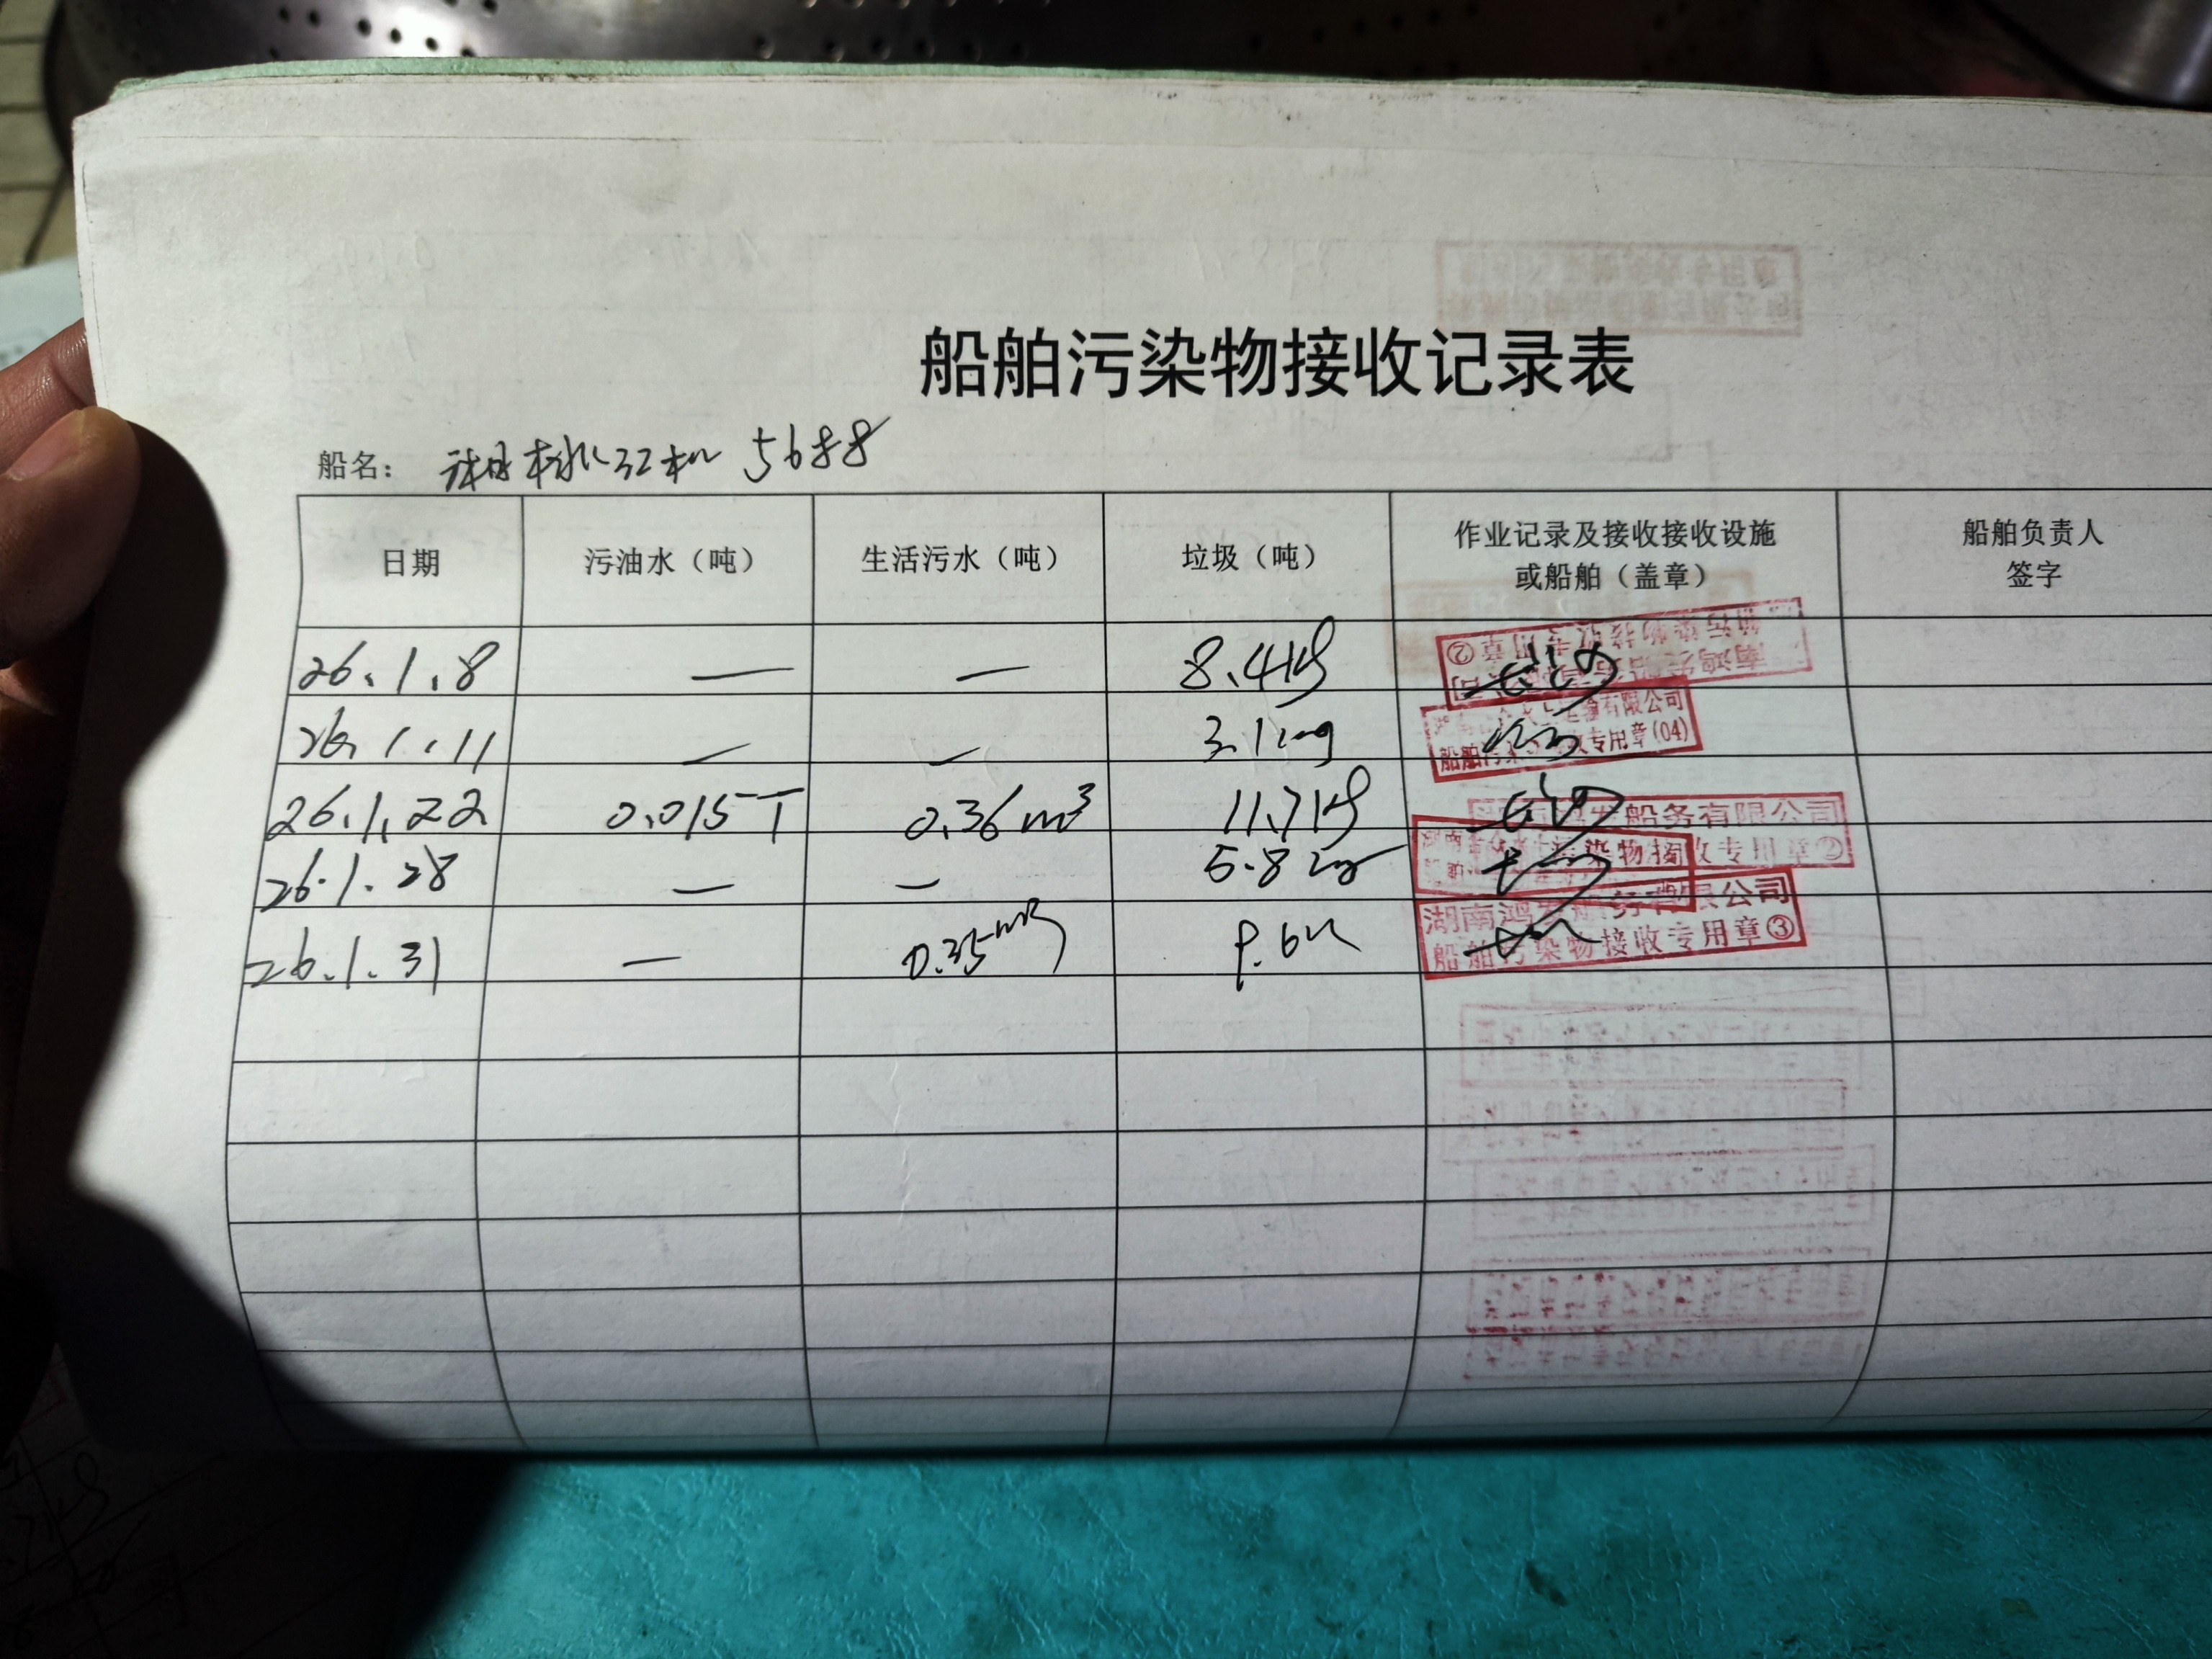 船舶污染物接收记录表
船名： 5688
日期 污油水（吨） 生活污水（吨） 垃圾（吨） 作业记录及接收接收设施或船舶（盖章） 船舶负责人签字
26.1.8 — — 8.4kg
26.1.11 — — 3.1kg
船舶污染 专用章(04)
26.1.22 0.015T 0.36m³ 11.7kg
船务有限公司
污染物接收专用章②
26.1.28 — — 5.8kg
26.1.31 — 0.35m³ 9.6
湖南鸿 船务有限公司
船舶污染物接收专用章③